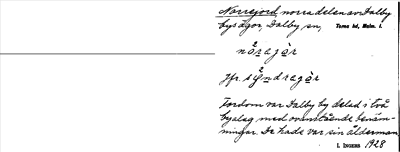 Norrejord norra delen av Dalby
bys ägor, Dalby sn, Torna hd, Malm. l.
nåragår
jfr. söndregår
Fordom var Dalby by delad i två
byalag med ovanstående benäm-
ningar. De hade var sin ålderman
I. INGERS 1928